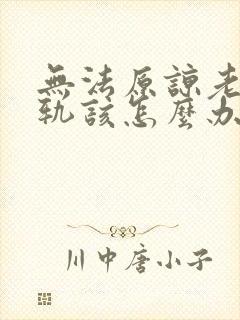 無法原諒老
軌該怎麼办
川中唐小子